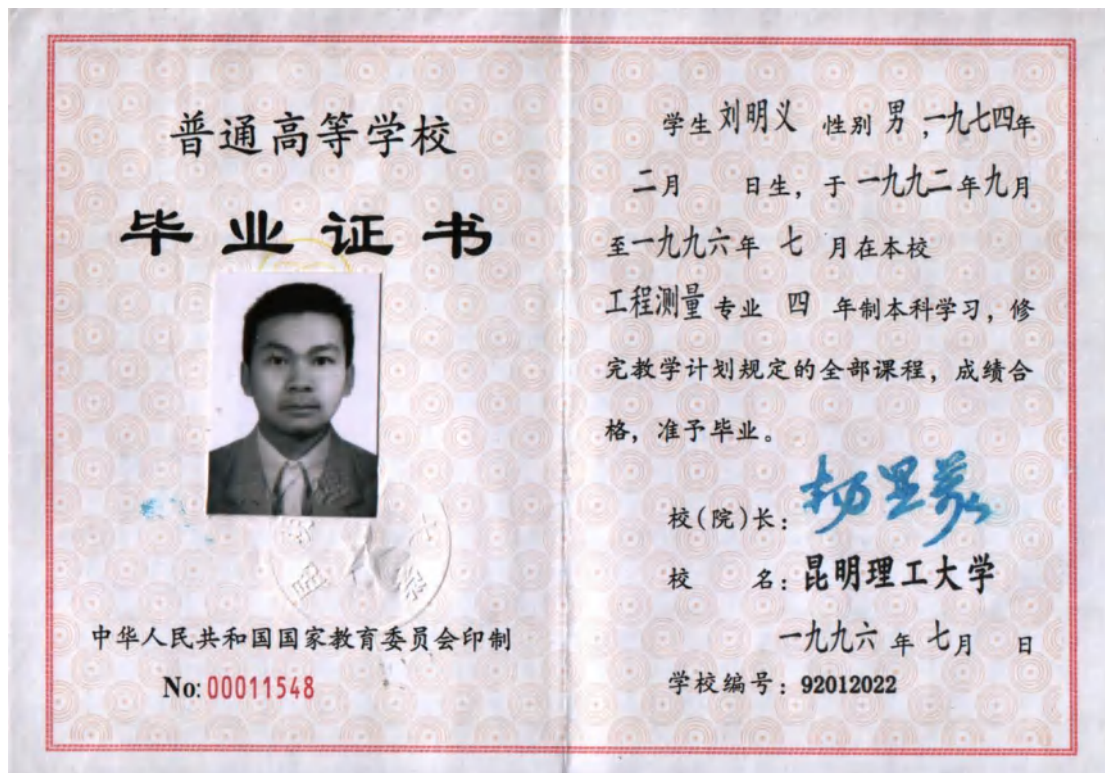 普通高等学校
毕业证书
中华人民共和国国家教育委员会印制
No: 00011548
学生 刘明义 性别 男 ,一九七四年
二月 日生，于 一九九二 年九月
至一九九六年 七 月在本校
工程测量 专业 四 年制本科学习，修
完教学计划规定的全部课程，成绩合
格，准予毕业。
校(院)长：
校 名：昆明理工大学
一九九六 年 七月 日
学校编号：92012022